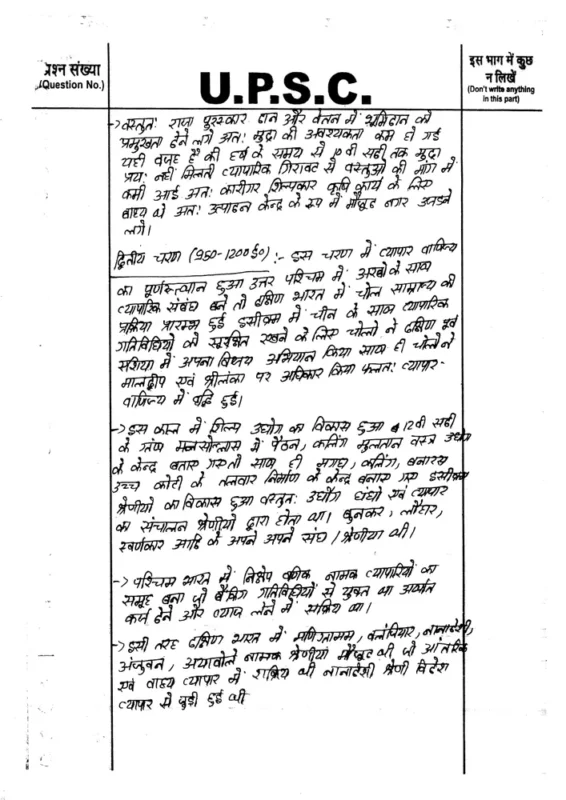 प्रश्न संख्या
(Question No.)
U.P.S.C.
इस भाग में कुछ
न लिखें
(Don't write anything
in this part)
-> वस्तुतः राजा पुरस्कार दान और वेतन में भूमिदान को
प्रमुखता देने लगे अतः मुद्रा की अवश्यकता कम हो गई
यही वजह है की हर्ष के समय से 10 वी सदी तक मुद्रा
प्रायः नहीं मिलती व्यापारिक गिरावट से वस्तुओ की मांग में
कमी आई अतः कारीगर शिल्पकार कृषि कार्य के लिए
बाध्य थे अतः उत्पादन केन्द्र के रूप में मौजूद नगर उजडने
लगे।
द्वितीय चरण (950-1200ई०) :- इस चरण में व्यापार वाणिज्य
का पूर्णरुत्थान हुआ उत्तर पश्चिम में अरबो के साथ
व्यापारिक संबंध बने तो दक्षिण भारत में चोल साम्राज्य की
प्रक्रिया प्रारम्भ हुई इसीक्रम में चीन के साथ व्यापारिक
गतिविधियों को सुरक्षित रखने के लिए चोलो ने दक्षिण पूर्व
एशिया में अपना विजय अभियान किया साथ ही चोलो ने
मालद्वीप एवं श्रीलंका पर अधिकार किया फलतः व्यापार-
वाणिज्य में वृद्धि हुई।
-> इस काल में शिल्प उद्योग का विकास हुआ 12वी सदी
के ग्रंथ मानसोल्लास में पैठन, कलिंग मुल्तान वस्त्र उद्योग
के केन्द्र बताए गए तो साथ ही मगध, कलिंग, बनारस
उच्च कोटी के तलवार निर्माण के केन्द्र बताए गए इसीक्रम
श्रेणीयो का विकास हुआ वस्तुतः उद्योग धंधो एवं व्यापार
का संचालन श्रेणीयो द्वारा होता था। बुनकर, लौहार,
स्वर्णकार आदि के अपने अपने संघ / श्रेणीया थी।
-> पश्चिम भारत में निक्षेप वणिक नामक व्यापारियों का
समूह बना जो बैंकिंग गतिविधियों से युक्त था अर्थात
कर्ज देने और ब्याज लेने में सक्रिय था।
-> इसी तरह दक्षिण भारत में मणिग्रामम, वलंजियार, नानादेशी,
अंजुवन, अयावोले नामक श्रेणीया मौजूद थी जो आंतरिक
एवं बाह्य व्यापार में सक्रिय थी नानादेशी श्रेणी विदेश
व्यापार से जुड़ी हुई थी